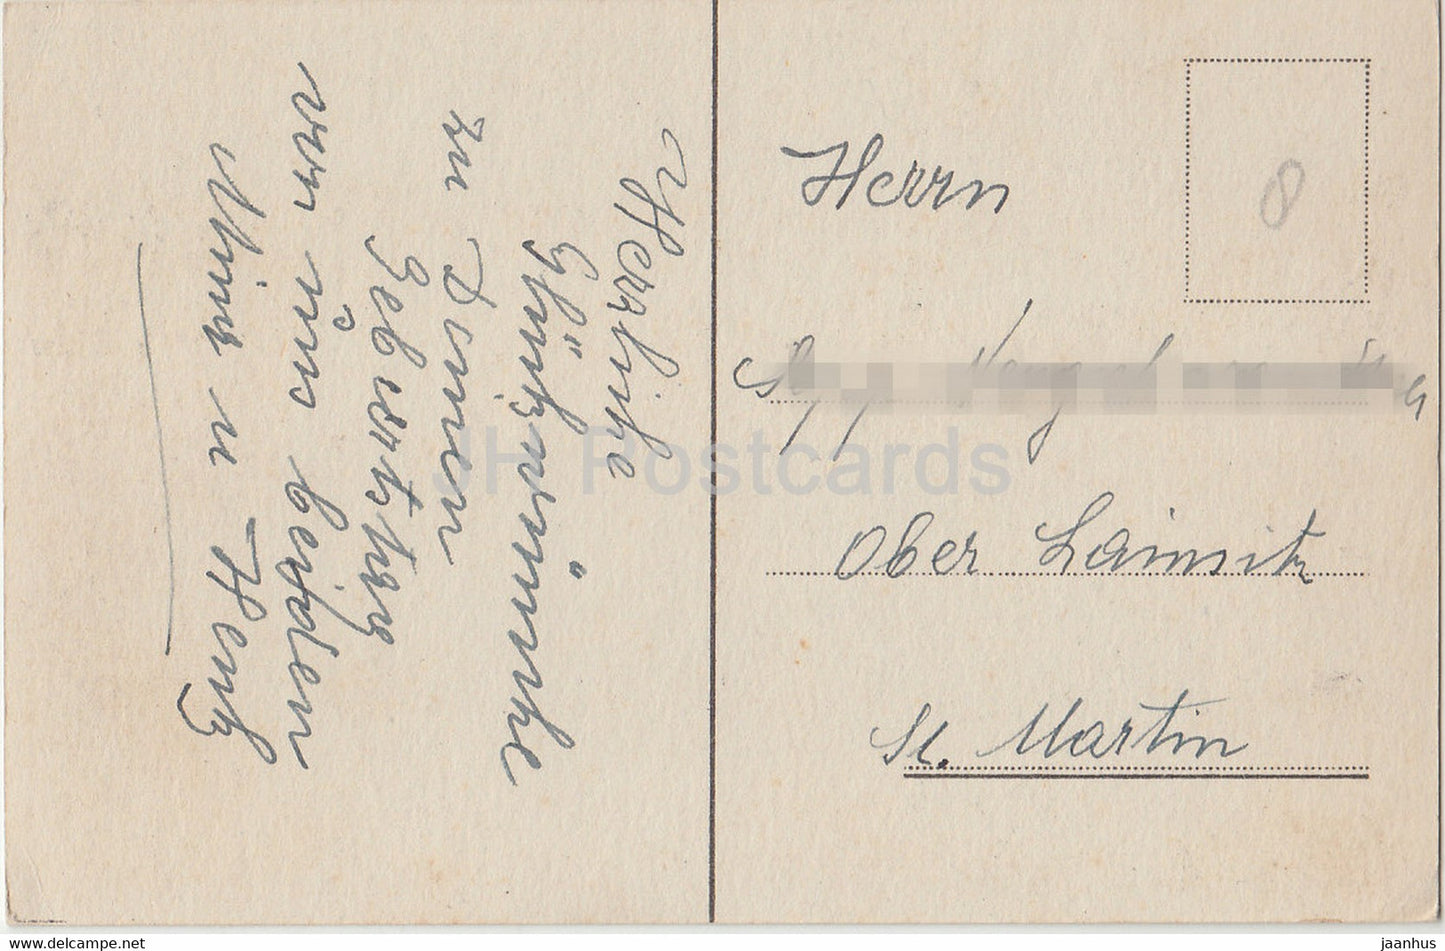 Herzliche
Glückwünsche
zu Deinem
Geburtstag
von uns beiden
u
Herrn
8
Ober Lainsitz
St. Martin
JH Postcards
www.delcampe.net
jaanhus